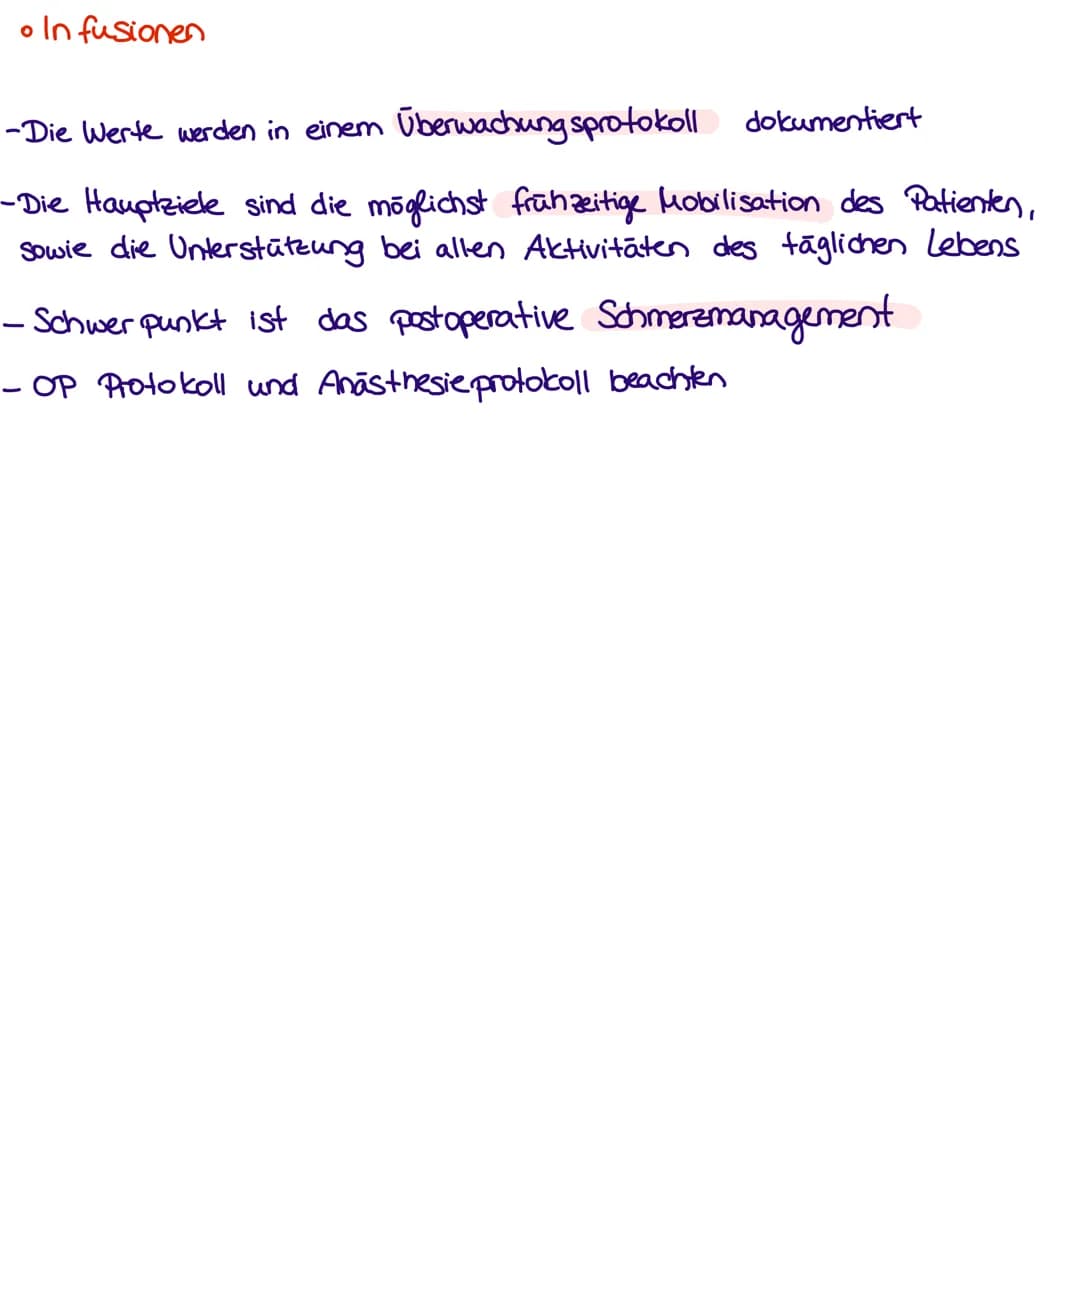 • Infusionen
- Die Werte werden in einem Überwachungsprotokoll dokumentiert
- Die Hauptziele sind die möglichst frühzeitige Mobilisation des Patienten,
sowie die Unterstützung bei allen Aktivitäten des täglichen Lebens
- Schwerpunkt ist das postoperative Schmerzmanagement
- OP Protokoll und Anästhesieprotokoll beachten